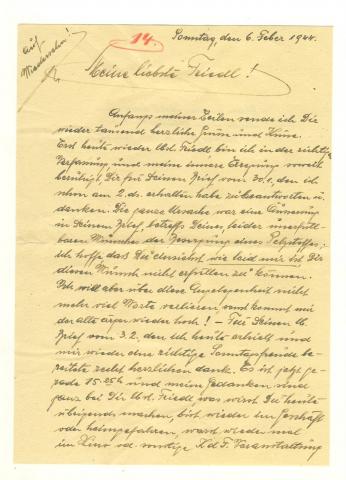 auf
Wiedersehn!
14.
Sonntag, den 6. Feber 1944.
Meine liebste Friedl!
Anfangs meiner Zeilen sende ich Dir
wieder tausend herzliche Grüsse und Küsse.
Erst heute wieder lb. Friedl bin ich in der richtigen
Verfassung, und meine innere Erregung soweit
beruhigt, Dir für Deinen Brief vom 30.1. den ich
schon am 2. ds. erhalten habe zu beantworten u.
danken. Die ganze Ursache war eine Äusserung
in Deinem Brief betreffs Deines, leider unerfüll-
baren Wunsches der Besorgung eines Pelzstoffes;
Ich hoffe das Du einsiehst wie leid mir ist Dir
diesen Wunsch nicht erfüllen zu können.
Ich will aber über diese Angelegenheit nicht
mehr viel Worte verlieren, sonst kommt mir
der alte ärger wieder hoch! – Für Deinen lb.
Brief vom 3.2. den ich heute erhielt und
mir wieder eine richtige Sonntagsfreude be-
reitete recht herzlichen dank. Es ist jetzt ge-
rade 15.25h und meine Gedanken sind
ganz bei Dir lb. Friedl, was wirst Du heute
übrigends machen, bist wieder im Geschäft
oder heimgefahren, warst wieder mal
im Kino od. sonstige K.d.F. Veranstaltung